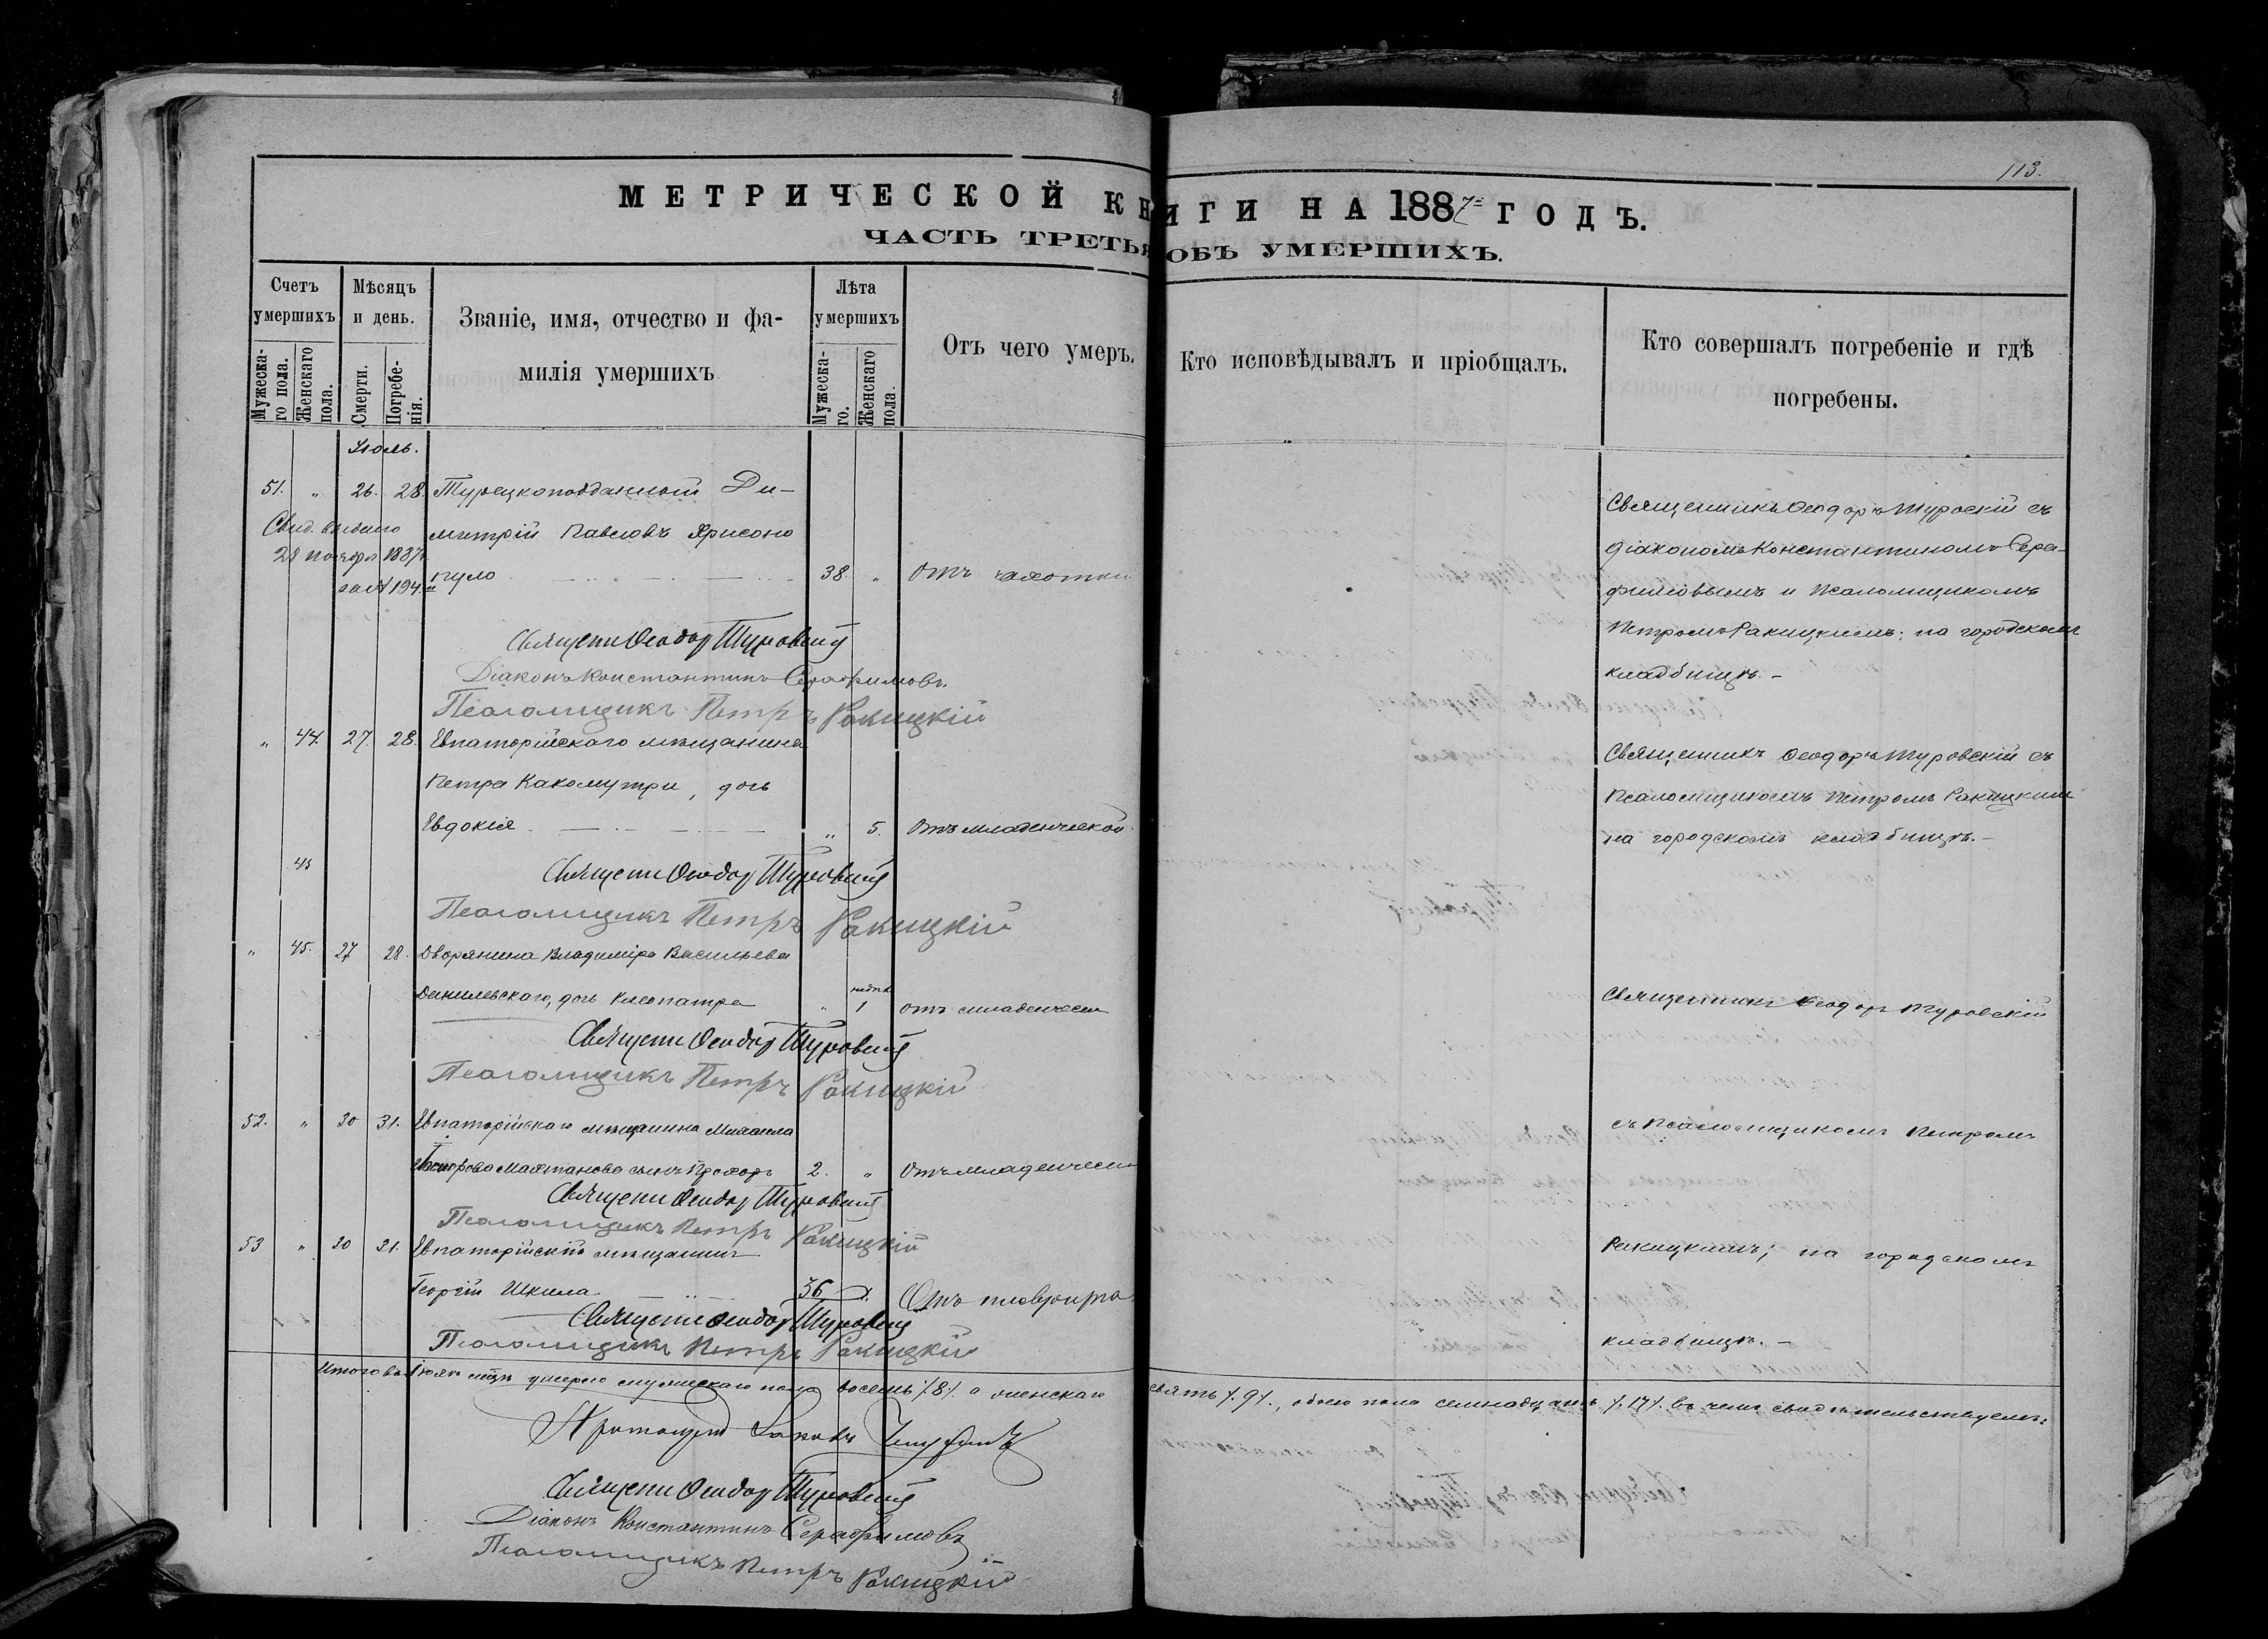 113.
МЕТРИЧЕСКОЙ КНИГИ НА 1887 ГОДЪ.
ЧАСТЬ ТРЕТЬЯ ОБЪ УМЕРШИХЪ.
Счетъ умершихъ
Мужеска-го пола.
Женскаго пола.
Мѣсяцъ и день.
Смерти.
Погребе-нія.
Званіе, имя, отчество и фа-
милія умершихъ
Лѣта умершихъ
Мужеска-го.
Женскаго пола.
Отъ чего умеръ.
Кто исповѣдывалъ и пріобщалъ.
Кто совершалъ погребеніе и гдѣ
погребены.
Іюль.
51. „ 26. 28. Турецкоподданный Ди-
Свид. выдано
митрій Павловъ
28 ноября 1887
за № 194.
пуло 38 „ Отъ чахотки
Священникъ Ѳеодоръ Туровскій съ
діакономъ Константиномъ Сера-
фимовымъ и Псаломщикомъ
Петромъ Ракицкимъ; на городскомъ
кладбищѣ. –
Священ Ѳеодор Туровскій
Діаконъ Константинъ Серафимовъ.
Псаломщикъ Петръ Ракицкій
„ 44. 27. 28. Евпаторійскаго мѣщанина
Петра Какомутри, дочь
Евдокія „ 5. Отъ младенческой
Священникъ Ѳеодоръ Туровскій съ
Псаломщикомъ Петромъ Ракицкимъ
на городскомъ кладбищѣ. –
Священ Ѳеодор Туровскій
Псаломщикъ Петръ Ракицкій
„ 45. 27 28. Дворянина Владиміра Васильева
Данилевскаго, дочь Клеопатра „ 1 отъ младенческ
Священ Ѳеодор Туровскій
Псаломщикъ Петръ Ракицкій
52. „ 30 31. Евпаторійскаго мѣщанина Михаила
сынъ Прохоръ 2. „ Отъ младенческ
Священ Ѳеодор Туровскій
Псаломщикъ Петръ Ракицкій
53 „ 30 31. Евпаторійскій мѣщанинъ
Георгій Шкила 36 Отъ плеврита
Священ Ѳеодор Туровскій
Псаломщикъ Петръ Ракицкій
Священникъ Ѳеодоръ Туровскій
съ Псаломщикомъ Петромъ
Ракицкимъ; на городскомъ
кладбищѣ. –
Итого въ Іюлѣ мцѣ умерло мужескаго пола восемь /.8/. а женскаго девять /.9/., обоего пола семнадцать /.17/. въ чемъ свидѣтельствуемъ:
Протоіерей Іаковъ
Священ Ѳеодор Туровскій
Діаконъ Константинъ Серафимовъ
Псаломщикъ Петръ Ракицкій